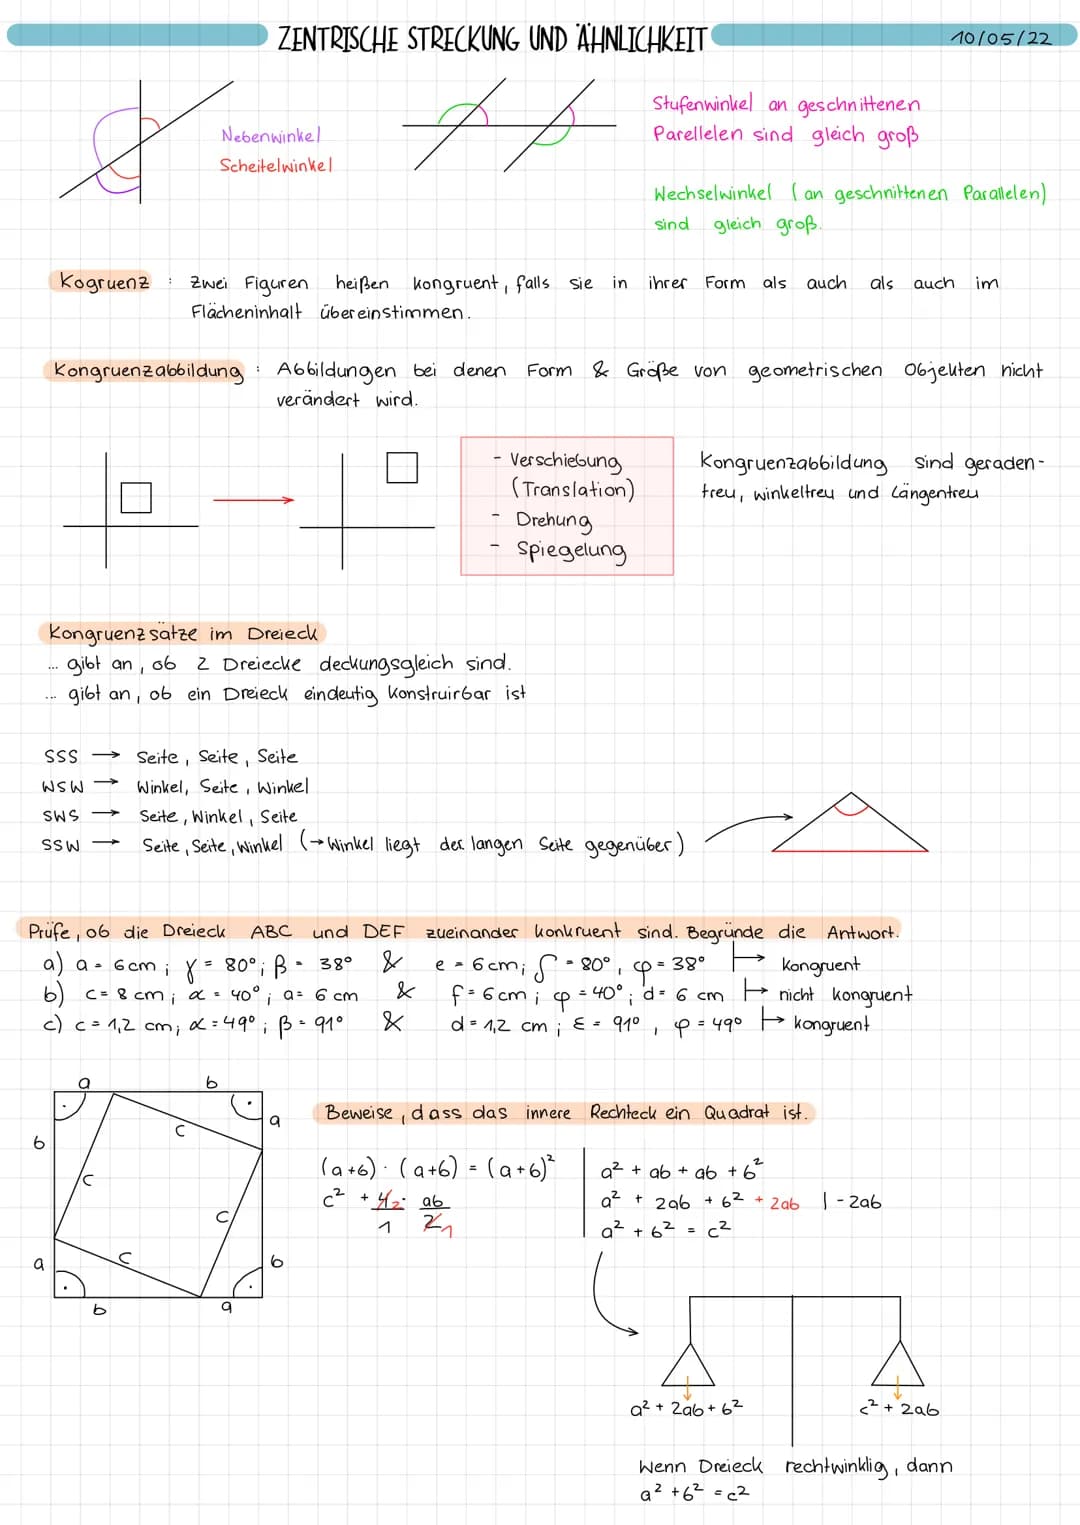 ZENTRISCHE STRECKUNG UND ÄHNLICHKEIT
10/05/22
Nebenwinkel
Scheitelwinkel
Stufenwinkel an geschnittenen
Parellelen sind gleich groß
Wechselwinkel (an geschnittenen Parallelen)
sind gleich groß.
Kogruenz : Zwei Figuren heißen kongruent, falls sie in ihrer Form als auch als auch im
Flächeninhalt übereinstimmen.
Kongruenzabbildung : Abbildungen bei denen Form & Größe von geometrischen Objekten nicht
verändert wird.
- Verschiebung
(Translation)
- Drehung
- Spiegelung
Kongruenzabbildung sind geraden-
treu, winkeltreu und Längentreu
Kongruenzsätze im Dreieck
... gibt an, ob 2 Dreiecke deckungsgleich sind.
... gibt an, ob ein Dreieck eindeutig konstruirbar ist
SSS → Seite, Seite, Seite
WSW → Winkel, Seite, Winkel
SWS → Seite, Winkel, Seite
SSW → Seite, Seite, Winkel (→ Winkel liegt der langen Seite gegenüber)
Prüfe, ob die Dreieck ABC und DEF zueinander konkruent sind. Begründe die Antwort.
a) a = 6cm; γ = 80°; β = 38° & e = 6cm; δ = 80°, φ = 38° ↦ kongruent
b) c = 8 cm; α = 40°; a = 6 cm & f = 6cm; φ = 40°; d = 6 cm ↦ nicht kongruent
c) c = 1,2 cm; α = 49°; β = 91° & d = 1,2 cm; ε = 91°, φ = 49° ↦ kongruent
a b
b c a
c
c
a c b
b a
Beweise, dass das innere Rechteck ein Quadrat ist.
(a+b) · (a+b) = (a+b)²
c² + 4 2/1 · ab/2 1
a² + ab + ab + b²
a² + 2ab + b² + 2ab | - 2ab
a² + b² = c²
a² + 2ab + b²
c² + 2ab
Wenn Dreieck rechtwinklig, dann
a² + b² = c²